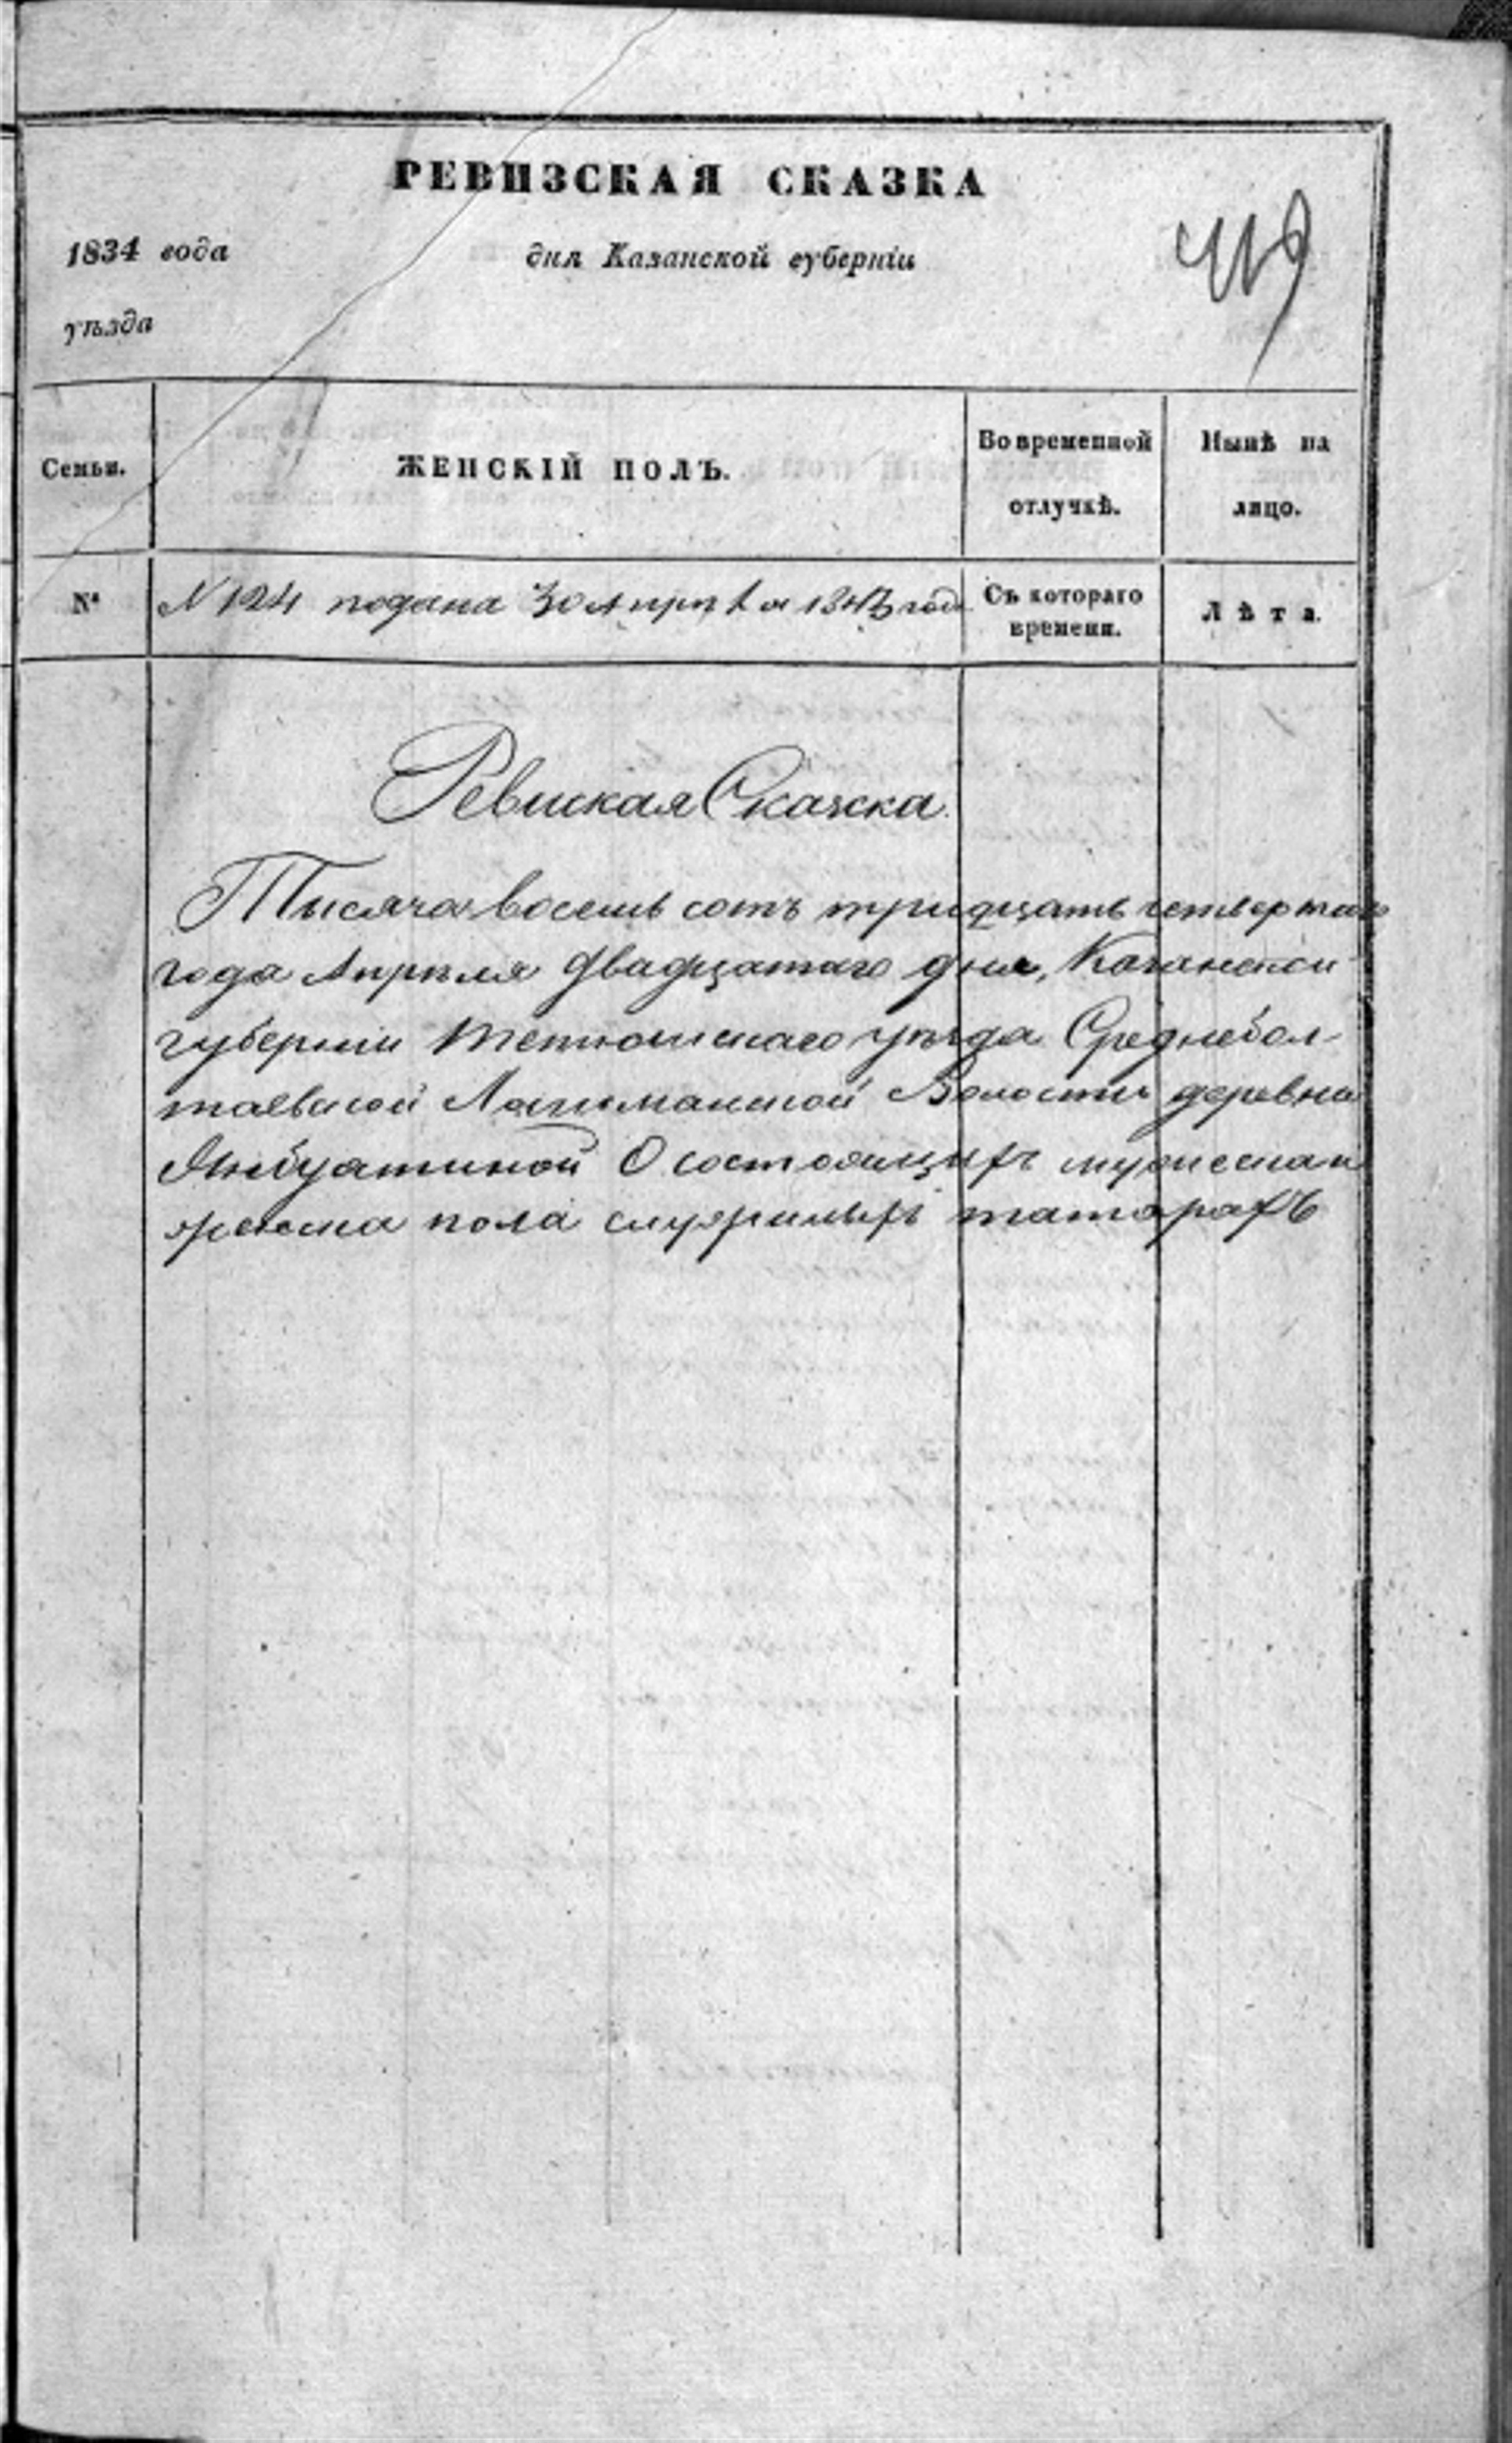 РЕВИЗСКАЯ СКАЗКА
1834 года дня Казанской губерніи
419
уѣзда
Семьи. ЖЕНСКІЙ ПОЛЪ. Во временной отлучкѣ. Нынѣ на лицо.
№ N 124 подана 30 Апрѣля Съ котораго времени. Лѣта.
Ревиская Скаска.
Тысяча восемь сотъ тридцать четвертаго
года Апрѣля двадцатаго дня, Казанской
губерніи Тетюшскаго уѣзда Среднебал-
таевской Лашманской Волости деревни
О состоящихъ мужеска и
женска пола служилыхъ татарахъ